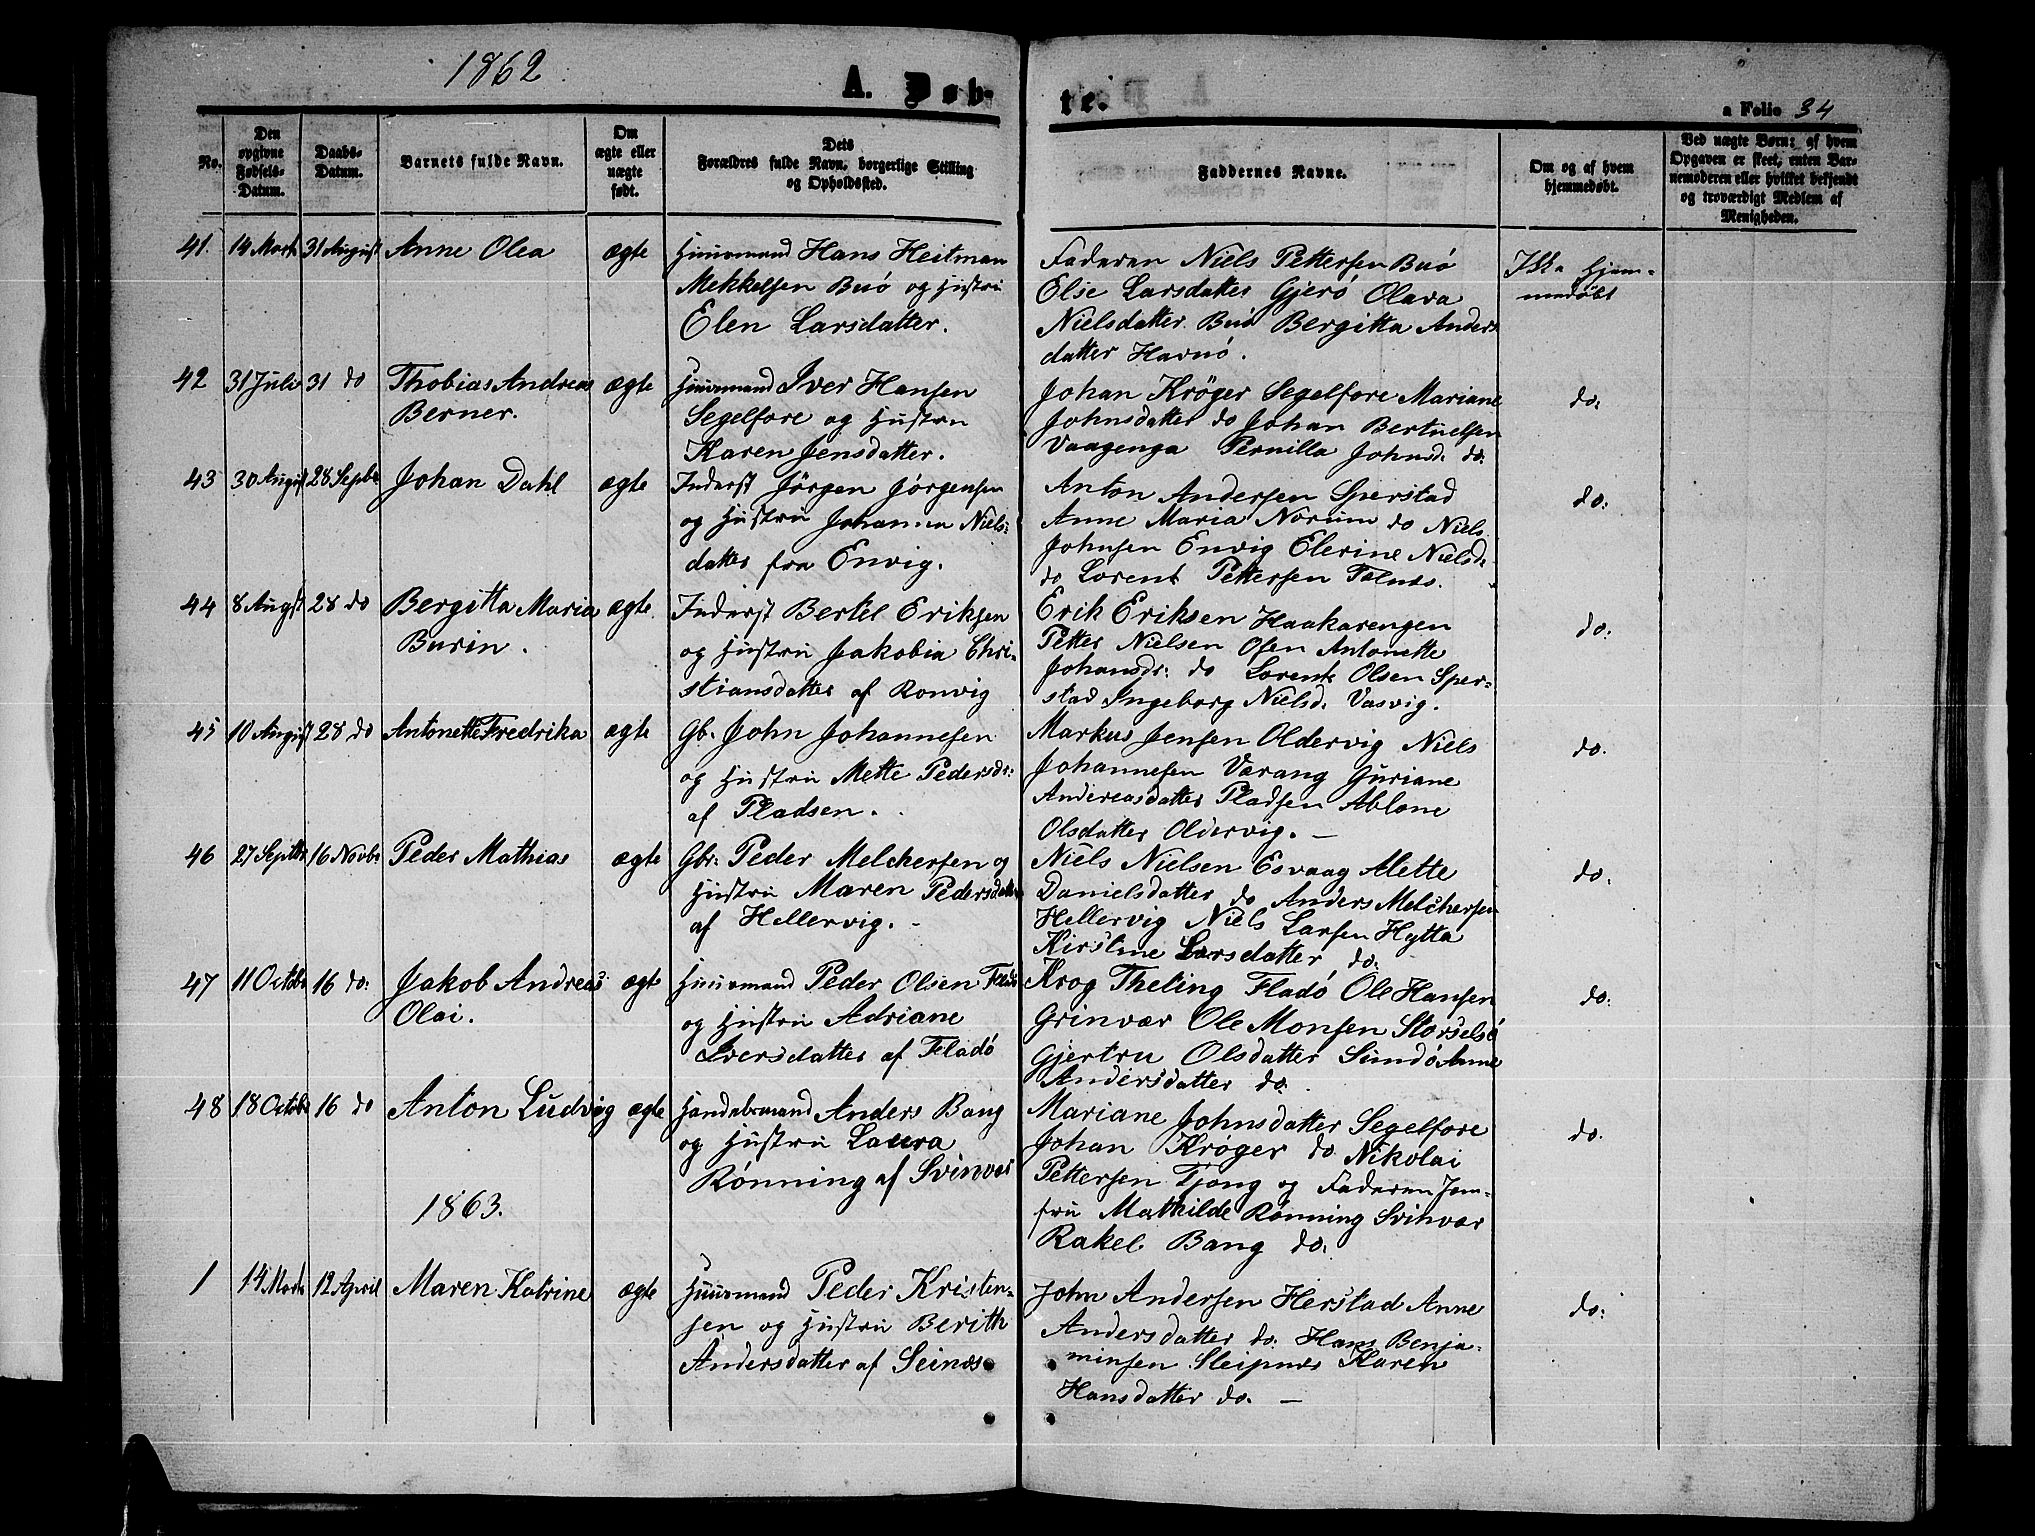 1862
A. Døb-
te.
a Folio 34
No.
Den
opgivne
Fødsels-
Datum.
Daabs-
Datum.
Barnets fulde Navn.
Om
ægte eller
uægte
født.
Dets
Forældres fulde Navn, borgerlige Stilling
og Opholdssted.
Faddernes Navne.
Om og af hvem
hjemmedøbt.
Ved uægte Børn: af hvem
Opgaven er skeet, enten Bar-
nemoderen eller hvilket bekjendt
og troværdigt Medlem af
Menigheden.
41. 14 Marts 31 August Anne Olea ægte Huusmand Hans Heitman
Mekkelsen Buø og Hustru
Elen Larsdatter.
Faderen Niels Pettersen Buø
Else Larsdatter Gjerø Olava
Nielsdatter Buø Bergitta Anders
datter Havnø.
Ikke Hjem-
medøbt
42 31 Juli 31 do Thobias Andreas ægte Huusmand Iver Hansen
Berner.
Segelfore og Hustru
Karen Jensdatter.
Johan Krøger Segelfore Mariane
Johnsdatter do Johan Bertuelsen
Vaagenga Pernilla Johnsd. do.
do.
43 30 August 28 Septbr Johan Dahl ægte Inderst Jørgen Jørgensen
og Hustru Johanna Niels-
datter fra Envig.
Anton Andersen Sperstad
Anne Maria Norum do Niels
Johnsen Envig Elerine Nielsd.
do Lorent Pettersen Telnes.
do.
44 8 Augst 28 do Bergitta Maria ægte Inderst Bertel Eriksen
Burin.
og Hustru Jakobia Chri-
stiansdatter af Ronvig
Erik Eriksen Haakarengen
Petter Nielsen Osen Antonette
Johansdr. do Lorents Olsen Sper-
stad Ingeborg Nielsd. Vasvig.
do.
45 10 August 28 do Antonette Fredrika ægte Gb. John Johannesen
og Hustru Mette Pedersdr.
af Pladsen.
Markus Jensen Oldervig Niels
Johannesen Værang Guriane
Andreasdatter Pladsen Ablone
Olsdatter Oldervig. —
do.
46 27 Septbr 16 Novbr Peder Mathias ægte Gbr. Peder Melchersen og
Hustru Maren Pedersdatter
af Hellervig. -
Niels Nielsen Esvaag Alette
Danielsdatter do Anders Melchersen
Hellervig Niels Larsen Hytta
Kirstine Larsdatter do.
do.
47 11 Octobr 16 do. Jakob Andreas ægte Huusmand Peder Olsen Fladø
Olai.
og Hustru Adriane
Iversdatter af Fladø
Krog Theling Fladø Ole Hansen
Grinvær Ole Monsen Storselsø
Gjertru Olsdatter Sundø Anne
Andersdatter do.
do.
48 18 Octobr 16 do Anton Ludvig ægte Handelsmand Anders Bang
og Hustru Laura
Rønning af Svinvær
Mariane Johnsdatter Segelfore
Johan Krøger do. Nikolai
Pettersen Tjong og Faderen Jom-
fru Mathilde Rønning Svinvær
Rakel Bang do.
do.
1863.
1 14 Marts 12 April Maren Katrine ægte Huusmand Peder Kristen-
sen og Hustru Berith
Andersdatter af Seines
John Andersen Herstad Anne
Andersdatter do. Hans Benja-
minsen Sleipnes Karen
Hansdatter do. —
do.